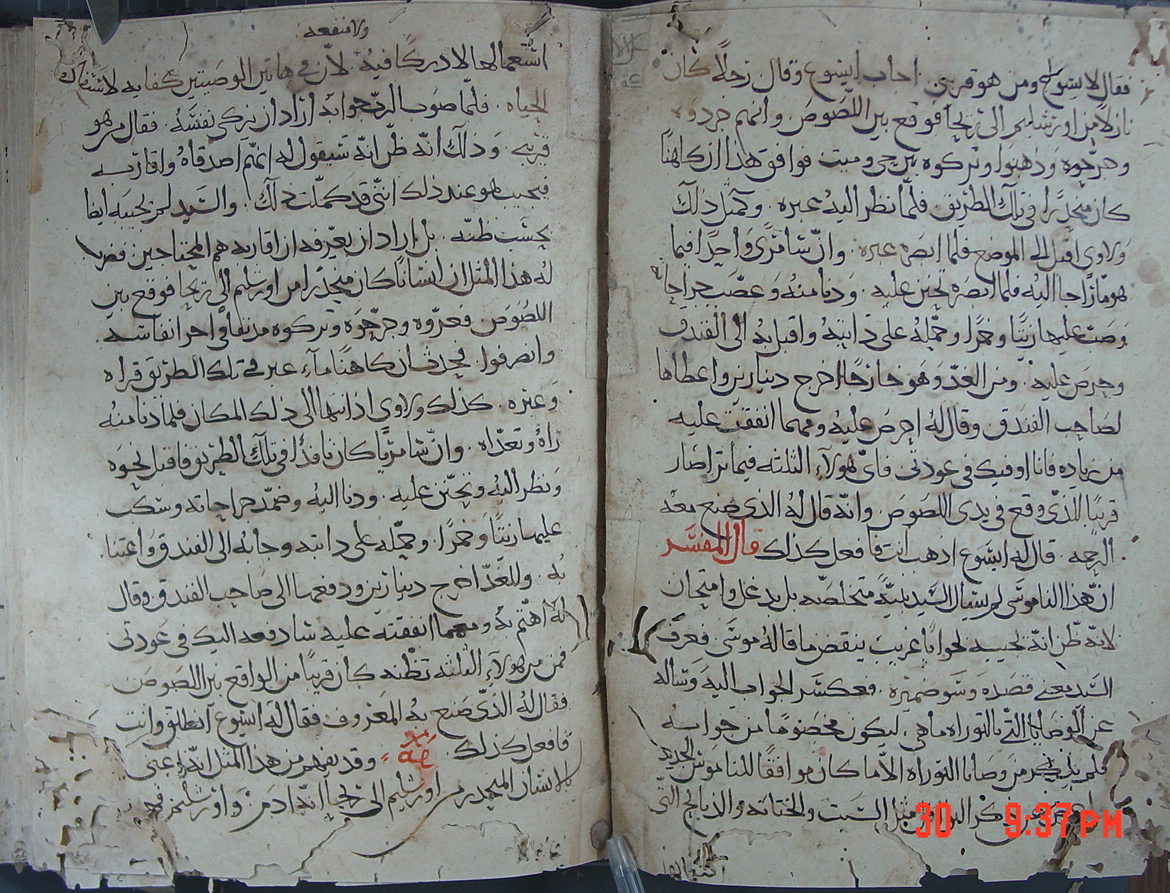 فقال لايشوع ومن هو قريبي. اجاب ايشوع وقال رجلاً كان
نازلاً من اورشليم الى ريحا فوقع بين اللصوص وانهم جردوه
وجرحوه وذهبوا وتركوه بين حي وميت فوافق هذا ان كاهنًا
كان منحدرًا في تلك الطريق فلما نظر اليه عبره. وكمثل ذلك
ولاوي اقبل الى الموضع فلما ابصره عبره. وانّ سامريًّا واحدًا فيما
هو مارًّا جا اليه فلما ابصره تحنن عليه. ودنا منه وعصّب جراحاته
وصبّ عليها زيتًا وخمرًا وحمله على دابته واقبل به الى الفندق
وحرص عليه. ومن الغد وهو خارجًا اخرج دينارين واعطاها
لصاحب الفندق وقال له احرص عليه ومهما انفقت عليه
من زياده فانا اوفيك في عودتي فاي هولاء الثلثه فيما ترا صار
قريبًا للذي وقع في يدي اللصوص وانه قال له الذي صنع معه
الرحمه. قال له ايشوع اذهب انت فافعل كذلك قال المفسر
ان هذا الناموسي لم يسال السيد بنيةً متخلصه بل بدغل وامتحان
لانه ظن انه يجيبه بجوابًا غريب ينقض ما قاله موسى فعرف
السيد قصده وسو ضميره. فعكس الجواب اليه وساله
عن الوصايا التي بالتوراه ما هي، ليكون مخصومًا من جوابه
فلم يذكر من وصايا التوراه الا ما كان موافقًا للناموس الجديد
مثل السبت والختانه والذبايح التي
ولا تنفعه
استعمالها الا دركًا فيه لان في هاتين الوصيتين كفايه
الحياه. فلما صوب الرب جوابه اراد ان يزكي نفسه. فقال من هو
قريبي وذلك انه ظن انه سيقول له انهم اصدقاه واقاربه
فيجيب هو عند ذلك انني قد كملت ذلك. والسيد لم يجيبه ايضا
بحسب ظنه بل اراد ان يعرفه ان اقاربه هم المحتاجين فضرب
له هذا المثل ان انسانًا كان منحدرًا من اورشليم الى ريحا فوقع بين
اللصوص فعروه وجرحوه وتركوه مدنفًا في اخر انفاسه
وانصرفوا فحدث ان كاهنًا ما، عبر في تلك الطريق فراه
وعبره. كذلك ولاوي اذ انتها الى ذلك المكان فلما دنا منه
راه وتعداه. وانّ سامريًّا كان نافذًا في تلك الطريق فاقبل نحوه
ونظر اليه وتحنن عليه. ودنا اليه وضمد جراحاته وسكب
عليها زيتًا وخمرًا. وحمله على دابته وجا به الى الفندق واعتنا
به. وللغد اخرج دينارين ودفعهما الى صاحب الفندق وقال
له اهتم به ومهما انفقته عليه سادفعه اليك في عودتي
فمن من هولاء الثلثه تظنه كان قريبًا من الواقع بين اللصوص
فقال له الذي صنع به المعروف فقال له ايشوع انطلق وانت
فافعل كذلك وقد يفهم من هذا المثل انه عنى
بالانسان المنحدر من اورشليم الى ريحا انه ادم. واورشليم فهي
30 9:37 PM